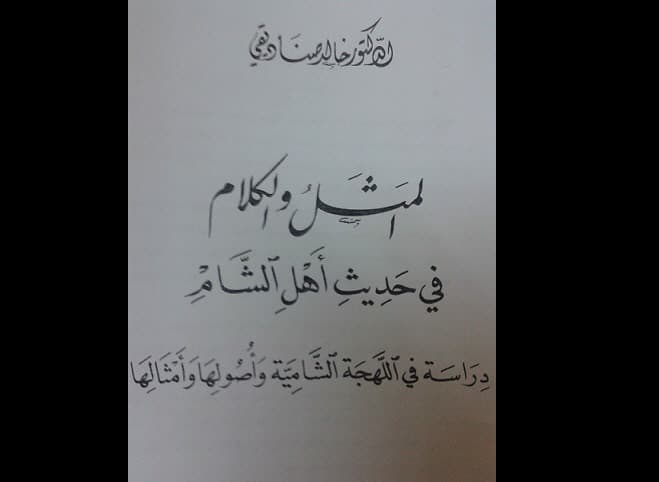 الدكتور خالد صناديقي
المَثَلُ والكلام
في حَدِيثِ أَهْلِ ٱلشَّامْ
دِرَاسَة في ٱللَّهجَة ٱلشَّامِيَّة وَأُصُولِهَا وَأَمْثَالِهَا